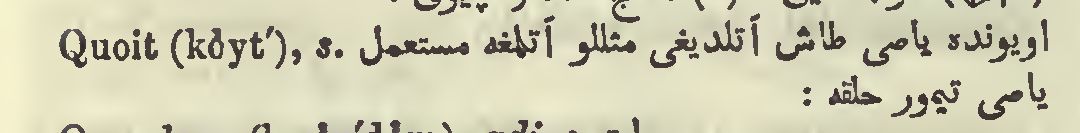 Quoit (kŏyt′), s. اويونده ياصى طاش آتلديغى مثللو آتلمغه مستعمل
ياصى تيمور حلقه :